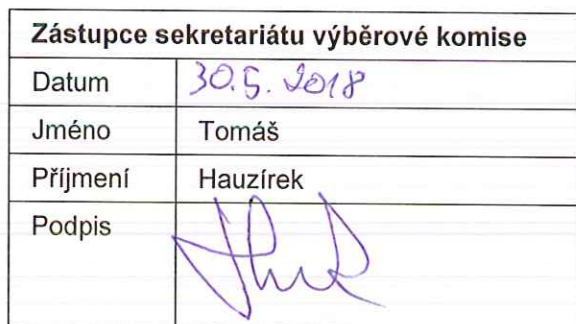 Zástupce sekretariátu výběrové komise
Datum 30.5. 2018
Jméno Tomáš
Příjmení Hauzírek
Podpis